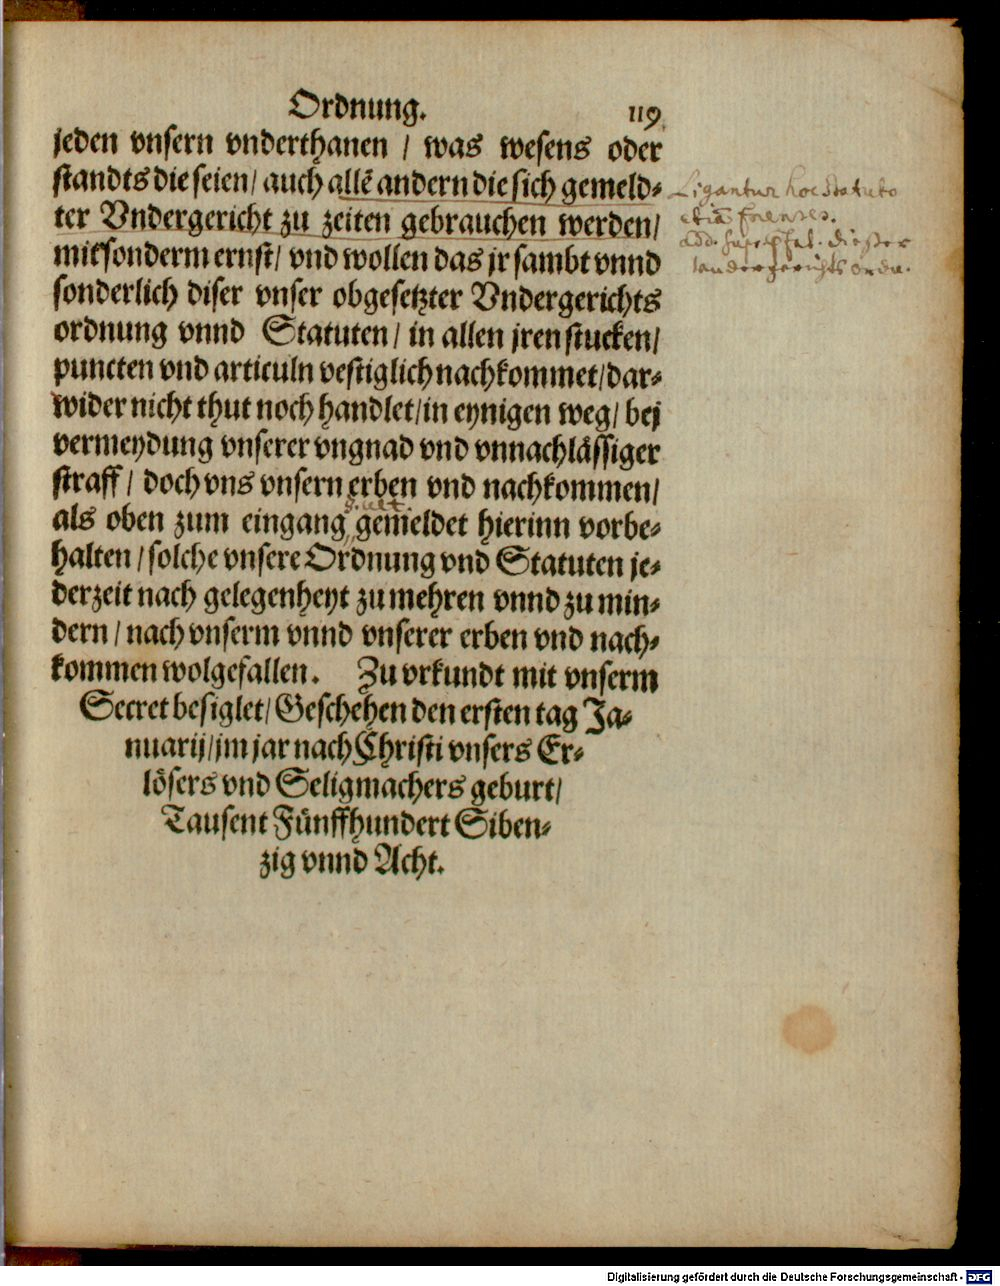 Ordnung. 119
jeden vnsern vnderthanen / was wesens oder
standts die seien / auch allē andern die sich gemeld-
ter Vndergericht zu zeiten gebrauchen werden /
mit sonderm ernst / vnd wollen das jr sambt vnnd
sonderlich diser vnser obgesetzter Vndergerichts
ordnung vnnd Statuten / in allen jren stucken /
puncten vnd articuln vestiglich nachkommet / dar-
wider nicht thut noch handlet / in eynigen weg / bej
vermeydung vnserer vngnad vnd vnnachlässiger
straff / doch vns vnsern erben vnd nachkommen /
als oben zum eingang gemeldet hierinn vorbe-
halten / solche vnsere Ordnung vnd Statuten je-
derzeit nach gelegenheyt zu mehren vnnd zu min-
dern / nach vnserm vnnd vnserer erben vnd nach-
kommen wolgefallen. Zu vrkundt mit vnserm
Secret besiglet / Geschehen den ersten tag Ja-
nuarij / jm jar nach Christi vnsers Er-
lösers vnd Seligmachers geburt /
Tausent Fünffhundert Siben-
zig vnnd Acht.
Ligantur hoc Statuto
etiā forenses.
dießer
Digitalisierung gefördert durch die Deutsche Forschungsgemeinschaft - DFG